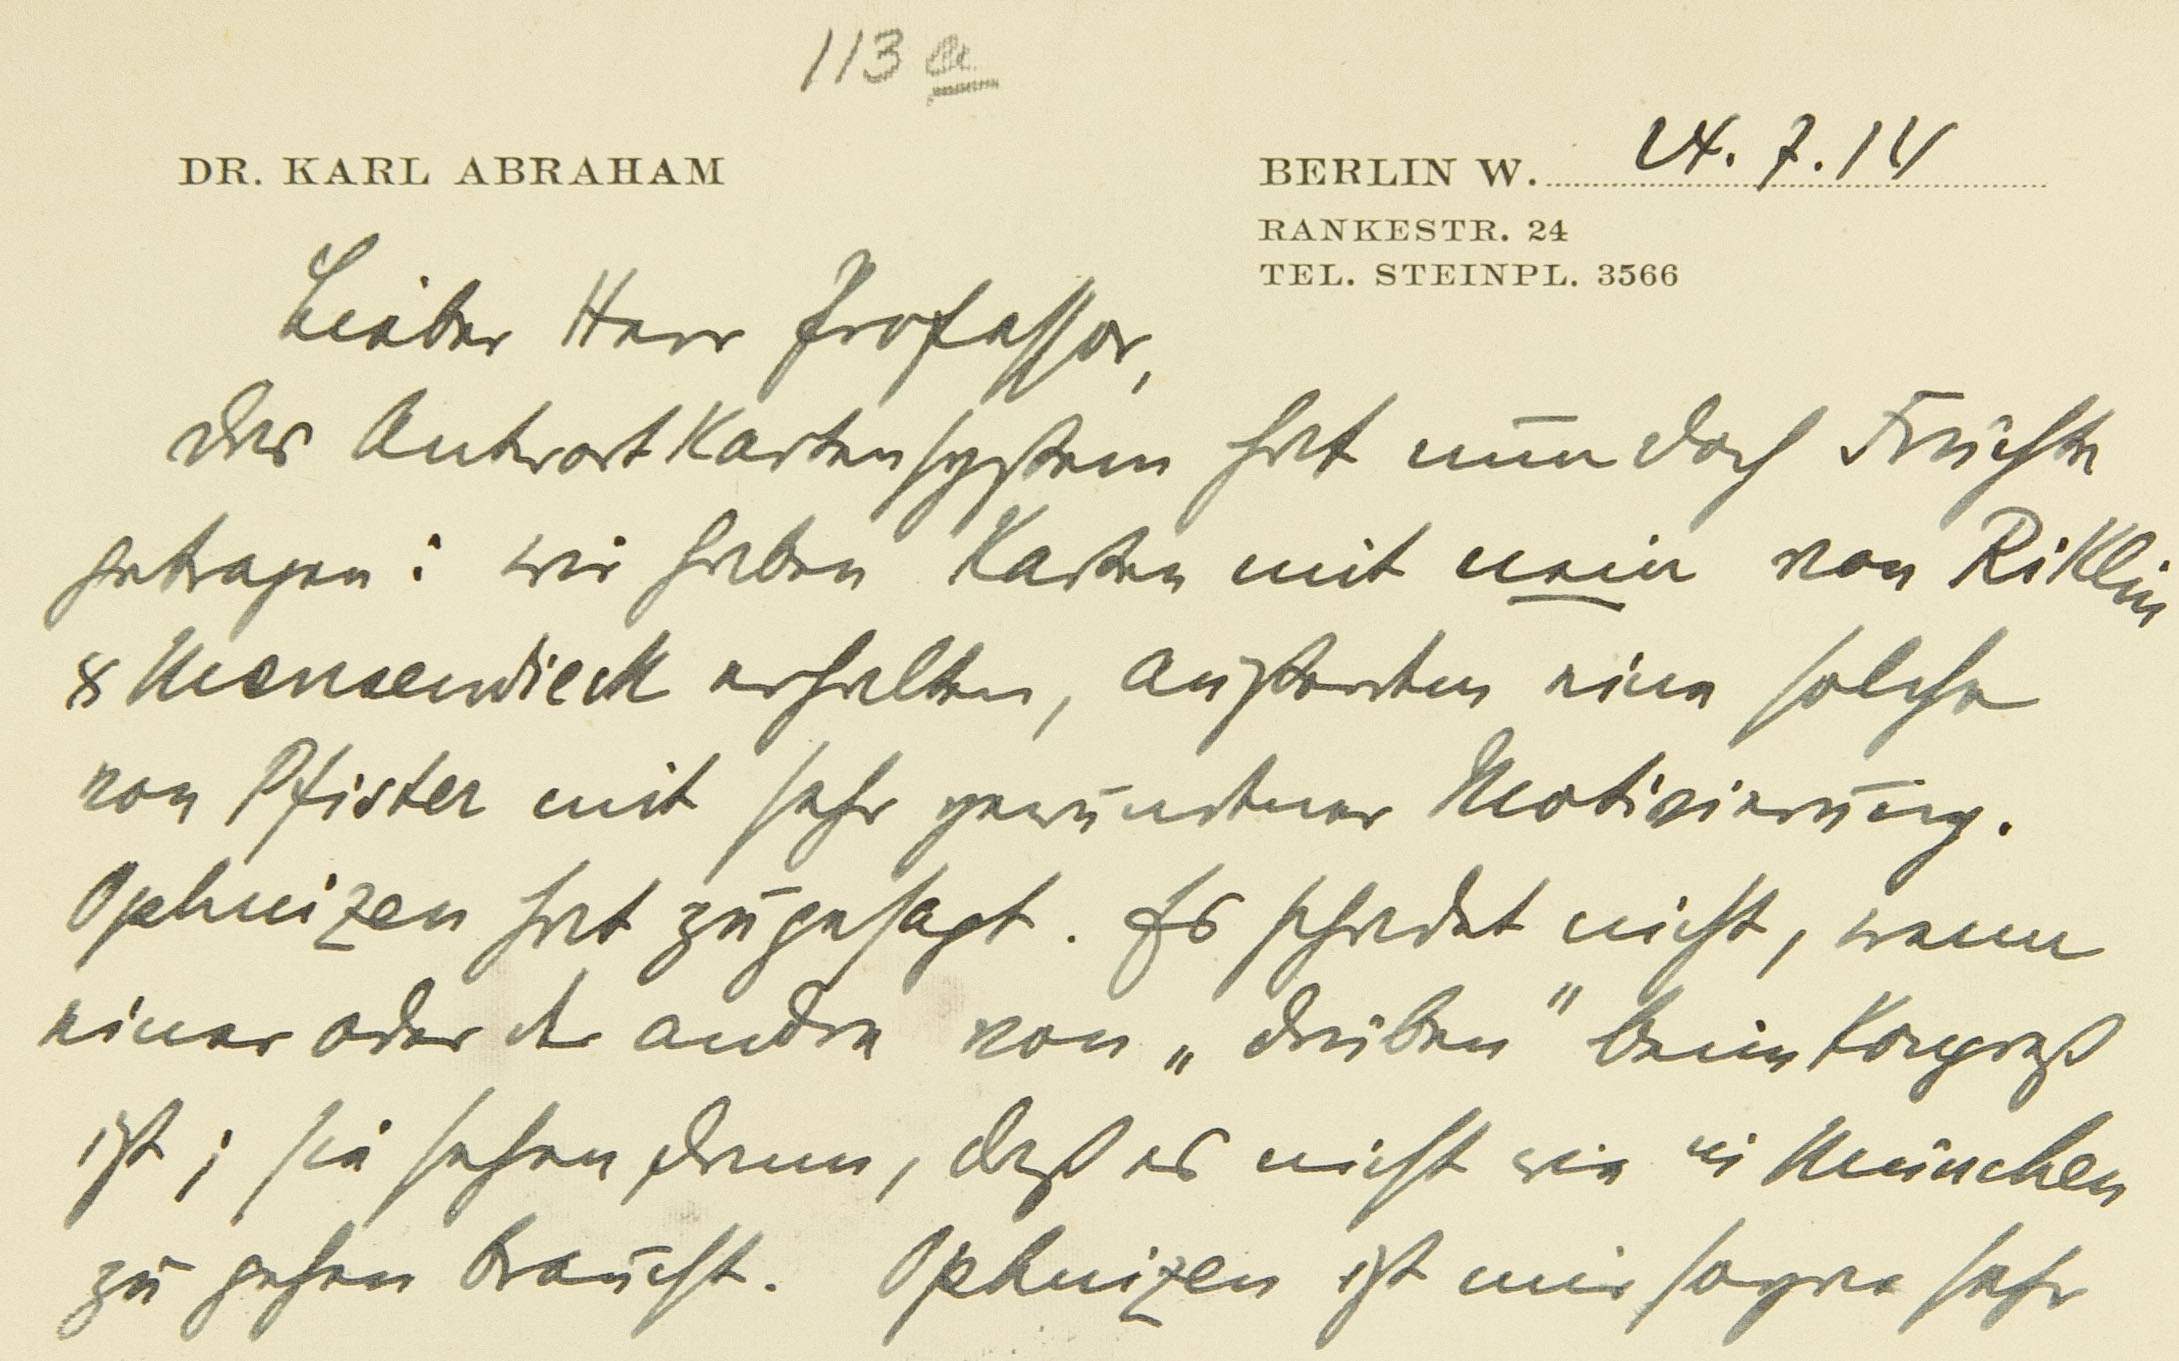 113 a
DR. KARL ABRAHAM
BERLIN W. 24. 7. 14
RANKESTR. 24
TEL. STEINPL. 3566
Lieber Herr Professor,
das Antwortkartensystem hat nun doch Früchte
getragen: wir haben Karten mit nein von Riklin
& Mensendieck erhalten, außerdem eine solche
von Pfister mit sehr gewundener Motivierung.
Ophuizen hat zugesagt. Es schadet nicht, wenn
einer oder der andre von „drüben“ beim Kongreß
ist; sie sehen dann, daß es nicht wie in München
zu gehen braucht. Ophuizen ist mir sogar sehr